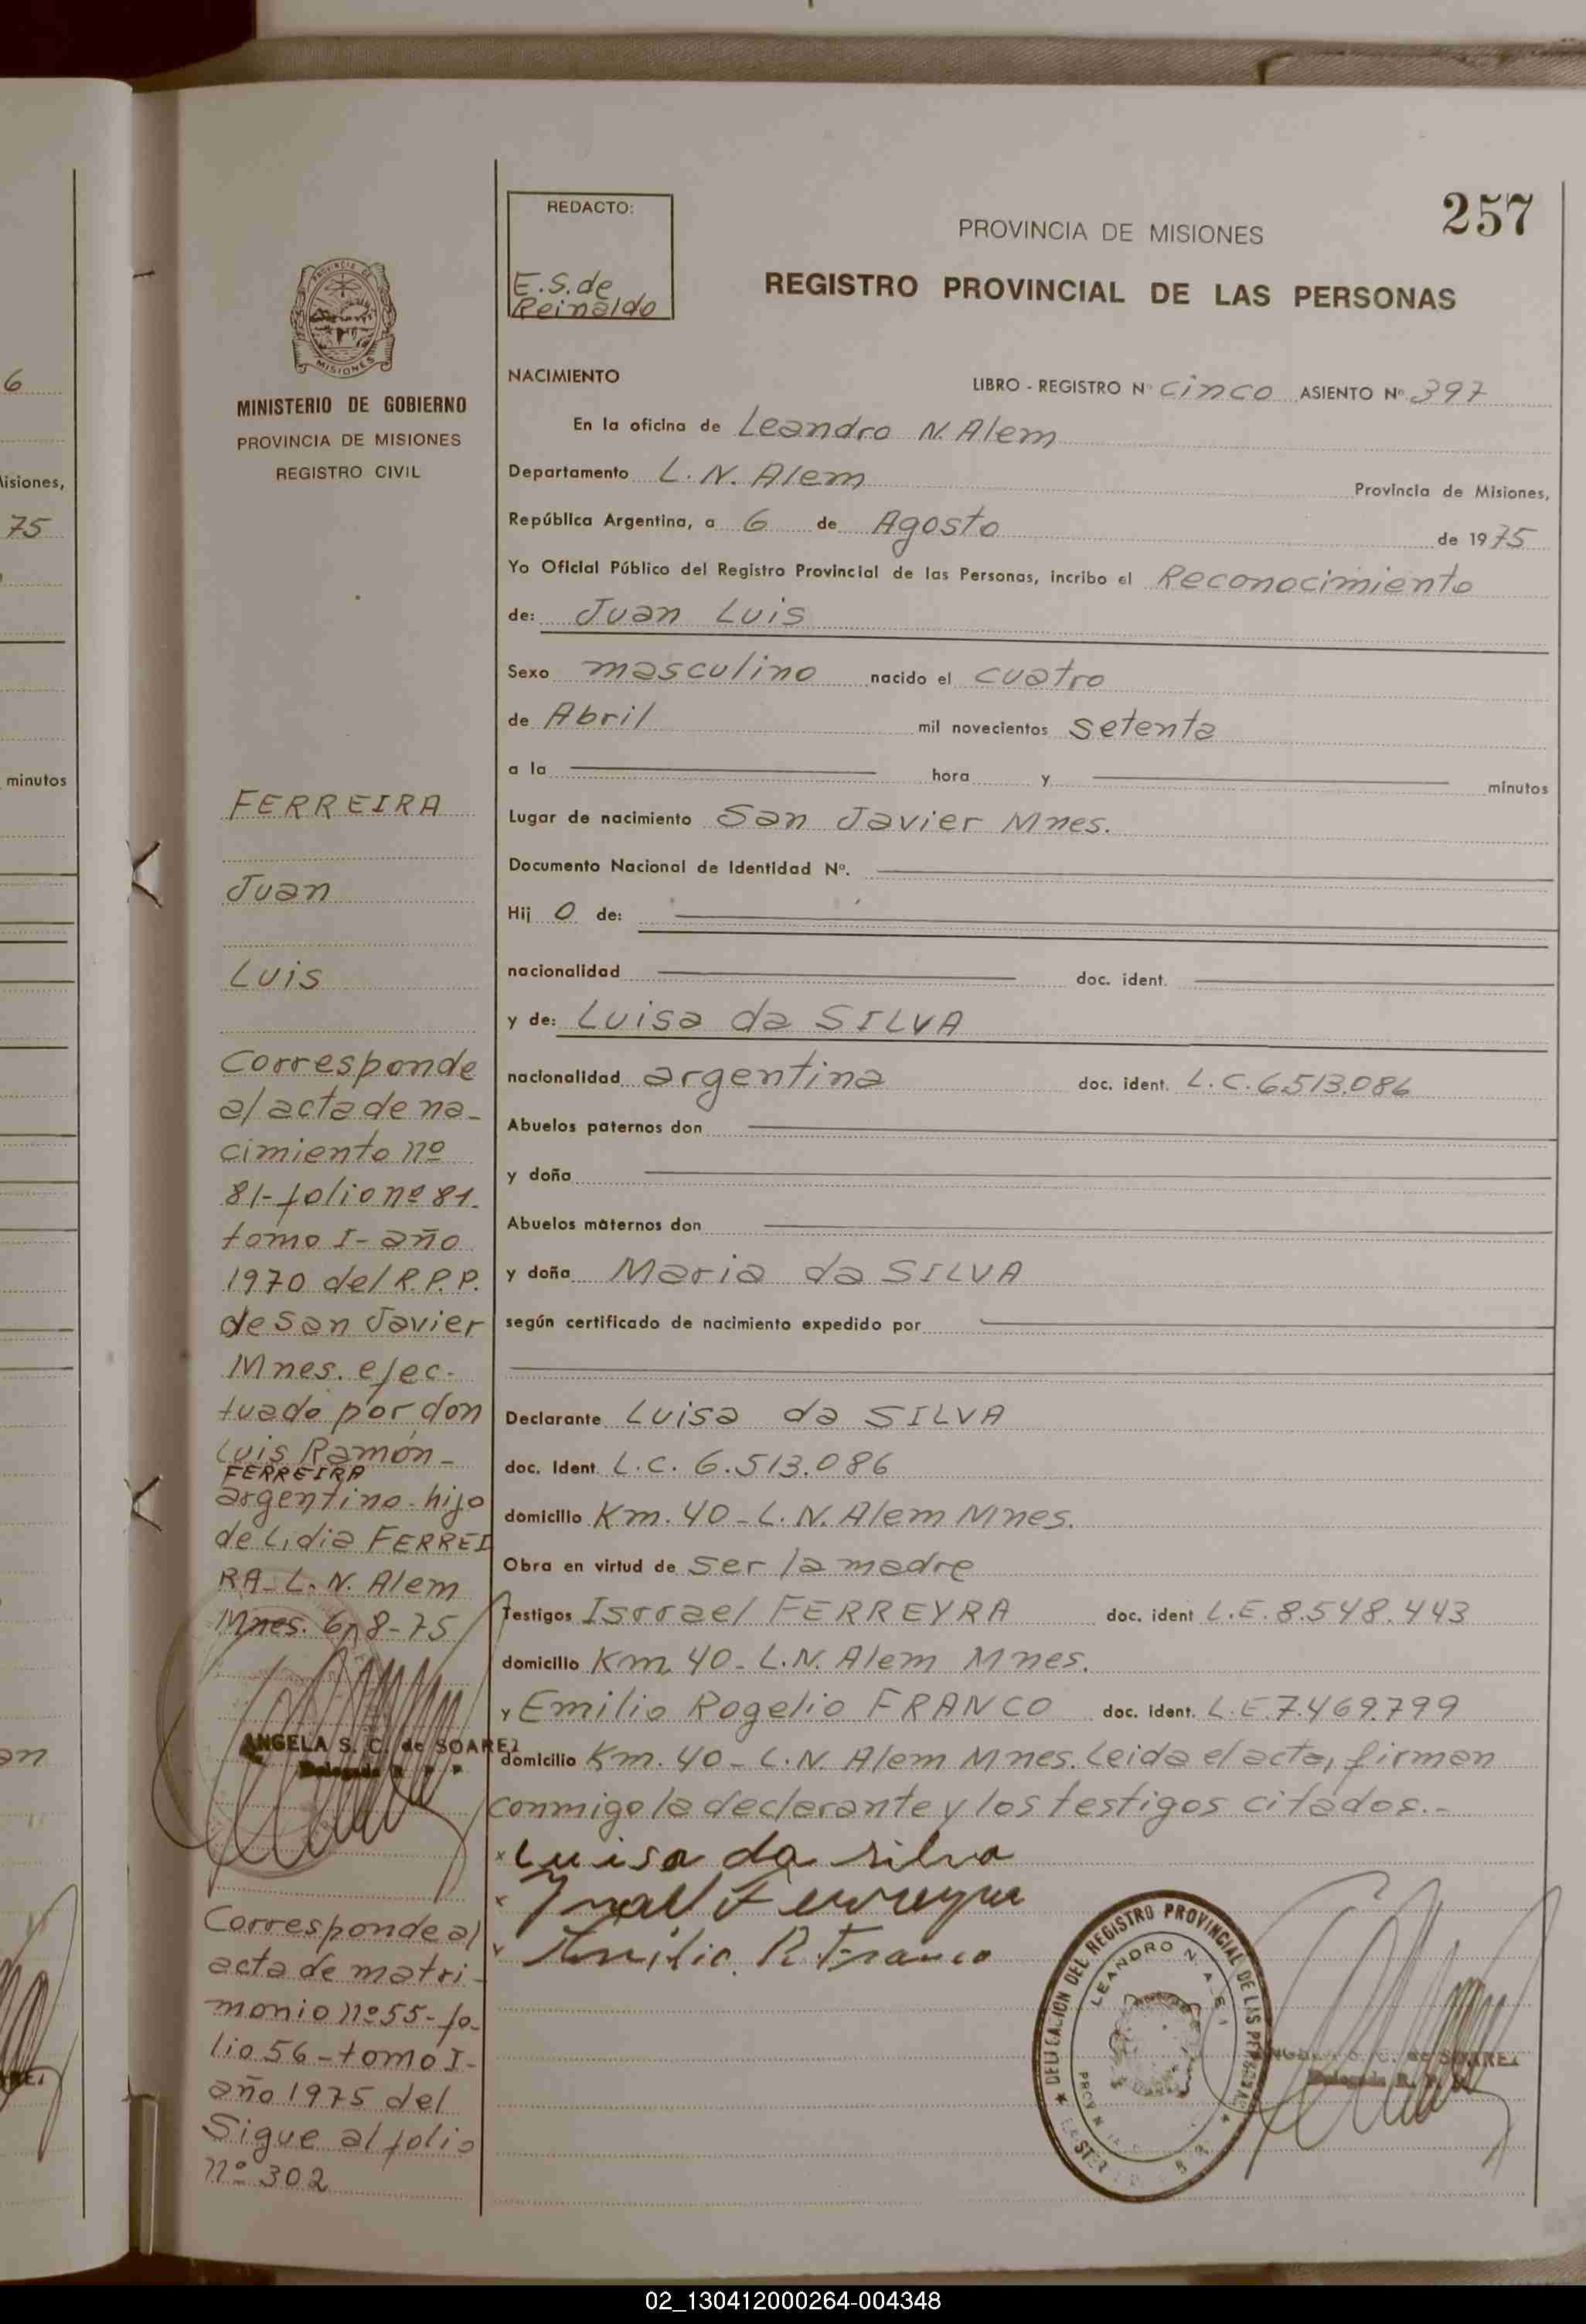 6
Misiones,
75
minutos
an
PROVINCIA DE
MISIONES
MINISTERIO DE GOBIERNO
PROVINCIA DE MISIONES
REGISTRO CIVIL
FERREIRA
Juan
Luis
Corresponde
al acta de na-
cimiento nº
81-folio nº 81.
tomo I- año
1970 del R.P.P.
de San Javier
Mnes. efec-
tuado por don
Luis Ramón-
FERREIRA
argentino-hijo
de Lidia FERREI
RA- L. N. Alem
Mnes. 6-8-75
ANGELA S. C. de SOAREZ
Delegada R. P. P.
Corresponde al
acta de matri-
monio nº 55-fo-
lio 56-tomo I-
año 1975 del
Sigue al folio
nº 302
REDACTO:
E.S. de
Reinaldo
257
PROVINCIA DE MISIONES
REGISTRO PROVINCIAL DE LAS PERSONAS
NACIMIENTO LIBRO - REGISTRO Nº cinco ASIENTO Nº 397
En la oficina de Leandro N. Alem
Departamento L. N. Alem Provincia de Misiones,
República Argentina, a 6 de Agosto de 1975
Yo Oficial Público del Registro Provincial de las Personas, incribo el Reconocimiento
de: Juan Luis
Sexo masculino nacido el cuatro
de Abril mil novecientos setenta
a la hora y minutos
Lugar de nacimiento San Javier Mnes.
Documento Nacional de Identidad Nº.
Hij o de:
nacionalidad doc. ident.
y de: Luisa da SILVA
nacionalidad argentina doc. ident. L.C. 6.513.086
Abuelos paternos don
y doña
Abuelos maternos don
y doña Maria da SILVA
según certificado de nacimiento expedido por
Declarante Luisa da SILVA
doc. Ident L.C. 6.513.086
domicilio Km. 40 - L. N. Alem Mnes.
Obra en virtud de ser la madre
Testigos Isrrael FERREYRA doc. ident L.E. 8.548.443
domicilio Km. 40 - L.N. Alem Mnes.
y Emilio Rogelio FRANCO doc. ident. L.E 7.469.799
domicilio Km. 40 - L. N. Alem Mnes. Leida el acta, firman
conmigo la declarante y los testigos citados.-
x Luisa da silva
x Israel Ferreyra
x Emilio R. Franco
DELEGACION DEL REGISTRO PROVINCIAL DE LAS PERSONAS
LEANDRO N. ALEM
ANGELA S. C. de SOAREZ
Delegada R. P. P.
02_130412000264-004348